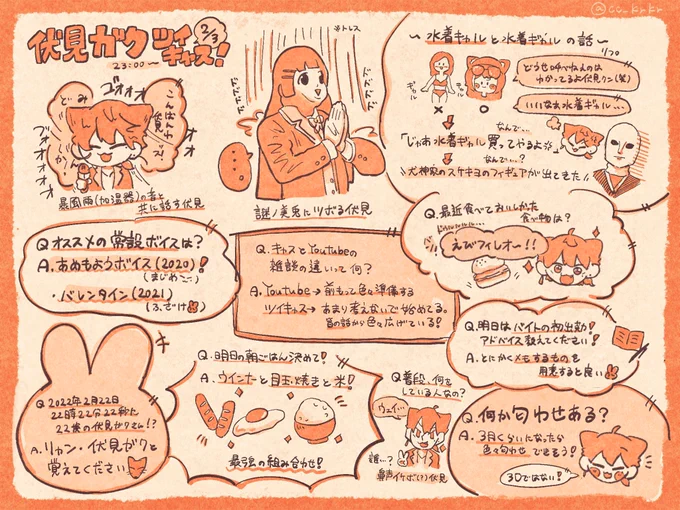 @co_krkr
伏見ガクツイキャス! 2/3
23:00〜
ゴォォオ
こんばんわ
伏見
ガッス!
どみ
かん
ブォオオオ
暴風雨(加湿器)の音と
共に話す伏見
※トレス
謎ノ美兎にツボる伏見
〜水着キャルと水着ギャルの話〜
リプ
どうせ呼べねんのは
わかってるよ伏見クン(笑)
いいなぁ水着ギャル…
ギャル
キャル
×
○
なんで…
「じゃあ水着ギャル買ってやるよな」
なんで…?
犬神家のスケキヨのフィギュアが出てきた
Q.オススメの常設ボイスは?
A.あめもようボイス(2020)!
(まじめニニ)
・バレンタイン(2021)
(ふざけ)
Q.キャスとYoutubeの
雑談の違いって何?
A.Youtube→前もって色々準備する
ツイキャス→あまり考えないで始めてる。
昔の話から色々広げている!
Q.最近食べておいしかった
食べ物は?
えびフィレオー!!
Q.明日はバイトの初出勤!
アドバイス教えてください!
A.とにかくメモするものを
用意すると良い
Q 2022年2月22日
22時22分22秒に
22歳の伏見ガクさん!?
A.リャン・伏見ガクと
覚えてください
Q.明日の朝ごはん決めて!
A.ウインナーと目玉焼きと米!
最強の組み合わせ!
Q普段、何を
している人なの?
ウェイ…
誰…?
鼻声イケボ(?)伏見
Q.何か匂わせある?
A.3月くらいになったら
色々匂わせできそう!
3Dではない!